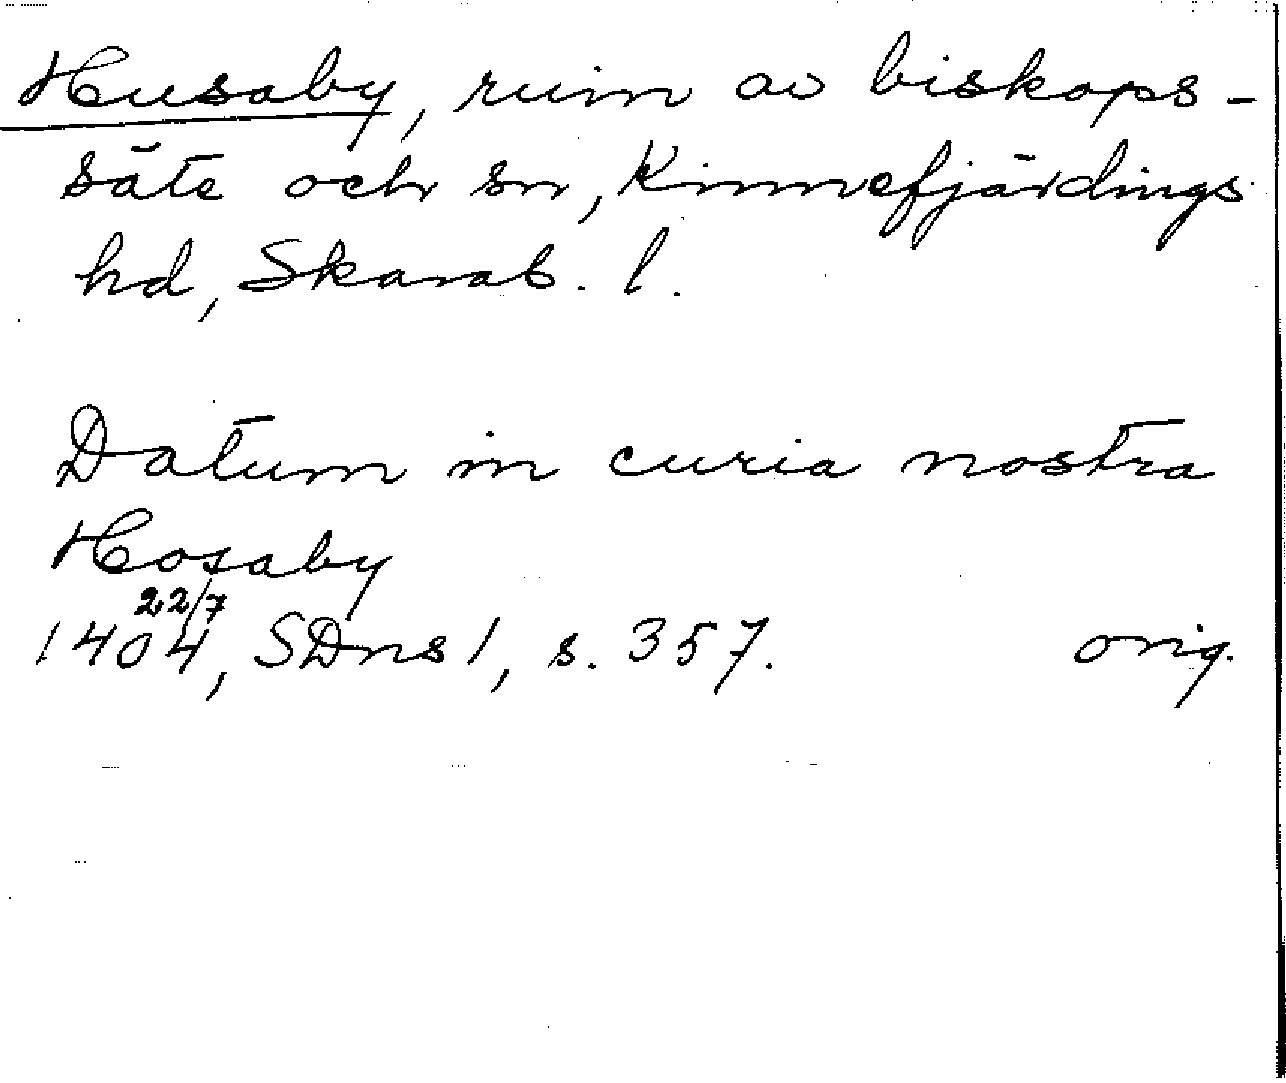 Husaby, ruin av biskops-
säte och sn, Kinnefjärdings
hd, Skarab. l.
Datum in curia nostra
Hosaby
22/7
1404, SDns 1, s. 357. orig.